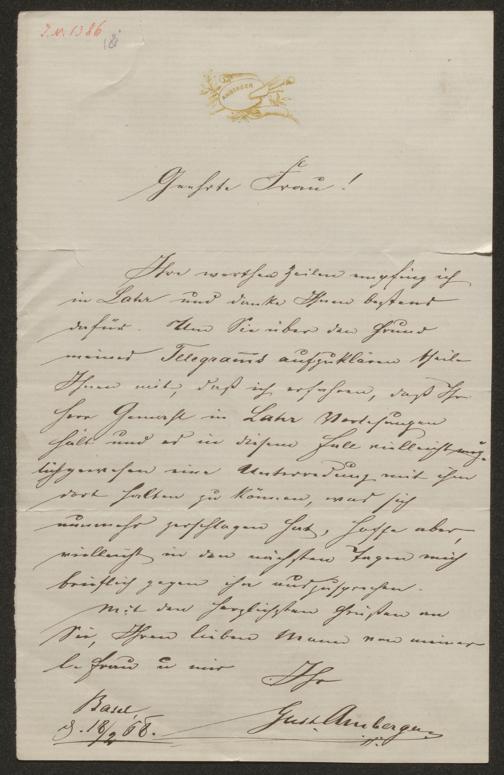 J.N. 1386
AMBERGER
Geehrte Frau!
Ihre werthen Zeilen empfing ich
in Lahr und danke Ihnen bestens
dafür. Um Sie über den Grund
meines Telegramms aufzuklären theile
Ihnen mit, daß ich erfahren, daß Ihr
Herr Gemahl in Lahr Vorlesungen
hält und es in diesem Fall vielleicht mög-
lich gewesen eine Unterredung mit ihm
dort halten zu können, was sich
nunmehr zerschlagen hat, hoffe aber,
vielleicht in den nächsten Tagen mich
brieflich gegen ihn auszusprechen.
Mit den herzlichsten Grüßen an
Sie, Ihren lieben Mann von meiner
l. Frau u mir
Ihr
Basel,
Gust. Amberger